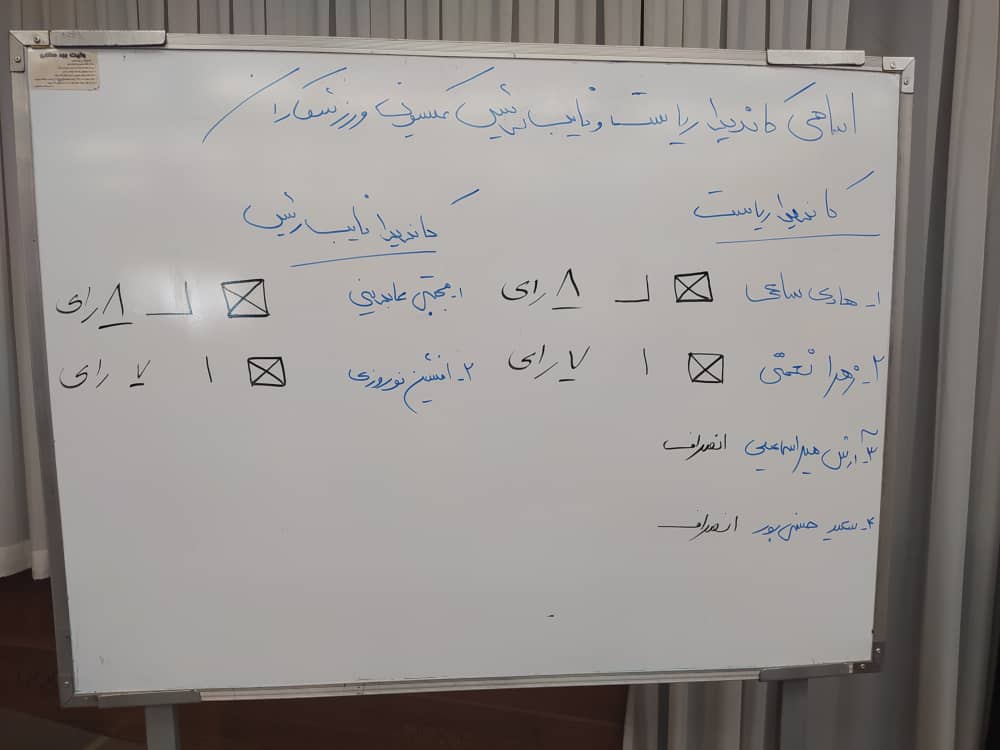 اسامی کاندیدا ریاست و نایب رئیس کمیسیون ورزشکاران
کاندیدا ریاست
۱- هادی ساعی ۸ رای
۲- زهرا نعمتی ۷ رای
۳- آرش میراسماعیلی انصراف
۴- سعید حسنی پور انصراف
کاندیدا نایب رئیس
۱- مجتبی عابدینی ۸ رای
۲- افشین نوروزی ۷ رای